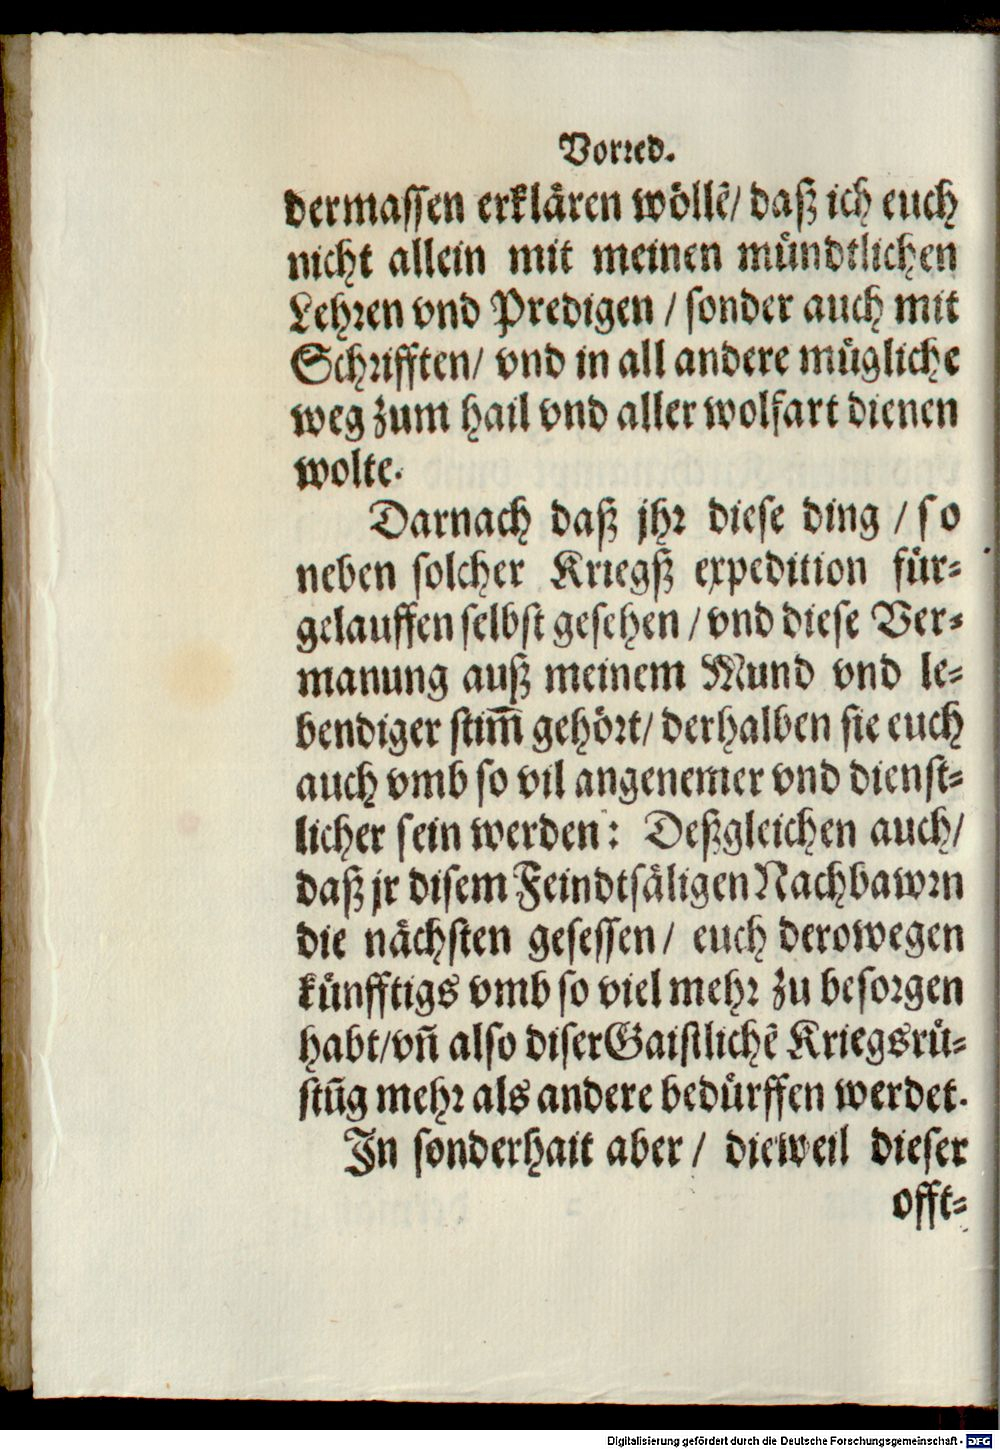 Vorred.
dermassen erklären wöllẽ/ daß ich euch
nicht allein mit meinen mündtlichen
Lehren vnd Predigen / sonder auch mit
Schrifften/ vnd in all andere mügliche
weg zum hail vnd aller wolfart dienen
wolte.
Darnach daß jhr diese ding / so
neben solcher Kriegß expedition für-
gelauffen selbst gesehen / vnd diese Ver-
manung auß meinem Mund vnd le-
bendiger stim̃ gehört/ derhalben sie euch
auch vmb so vil angenemer vnd dienst-
licher sein werden: Deßgleichen auch/
daß jr disem Feindtsäligen Nachbawrn
die nächsten gesessen/ euch derowegen
künfftigs vmb so viel mehr zu besorgen
habt/vñ also diser Gaistlichẽ Kriegsrü-
stũg mehr als andere bedürffen werdet.
In sonderhait aber / dieweil dieser
offt-
Digitalisierung gefördert durch die Deutsche Forschungsgemeinschaft - DFG